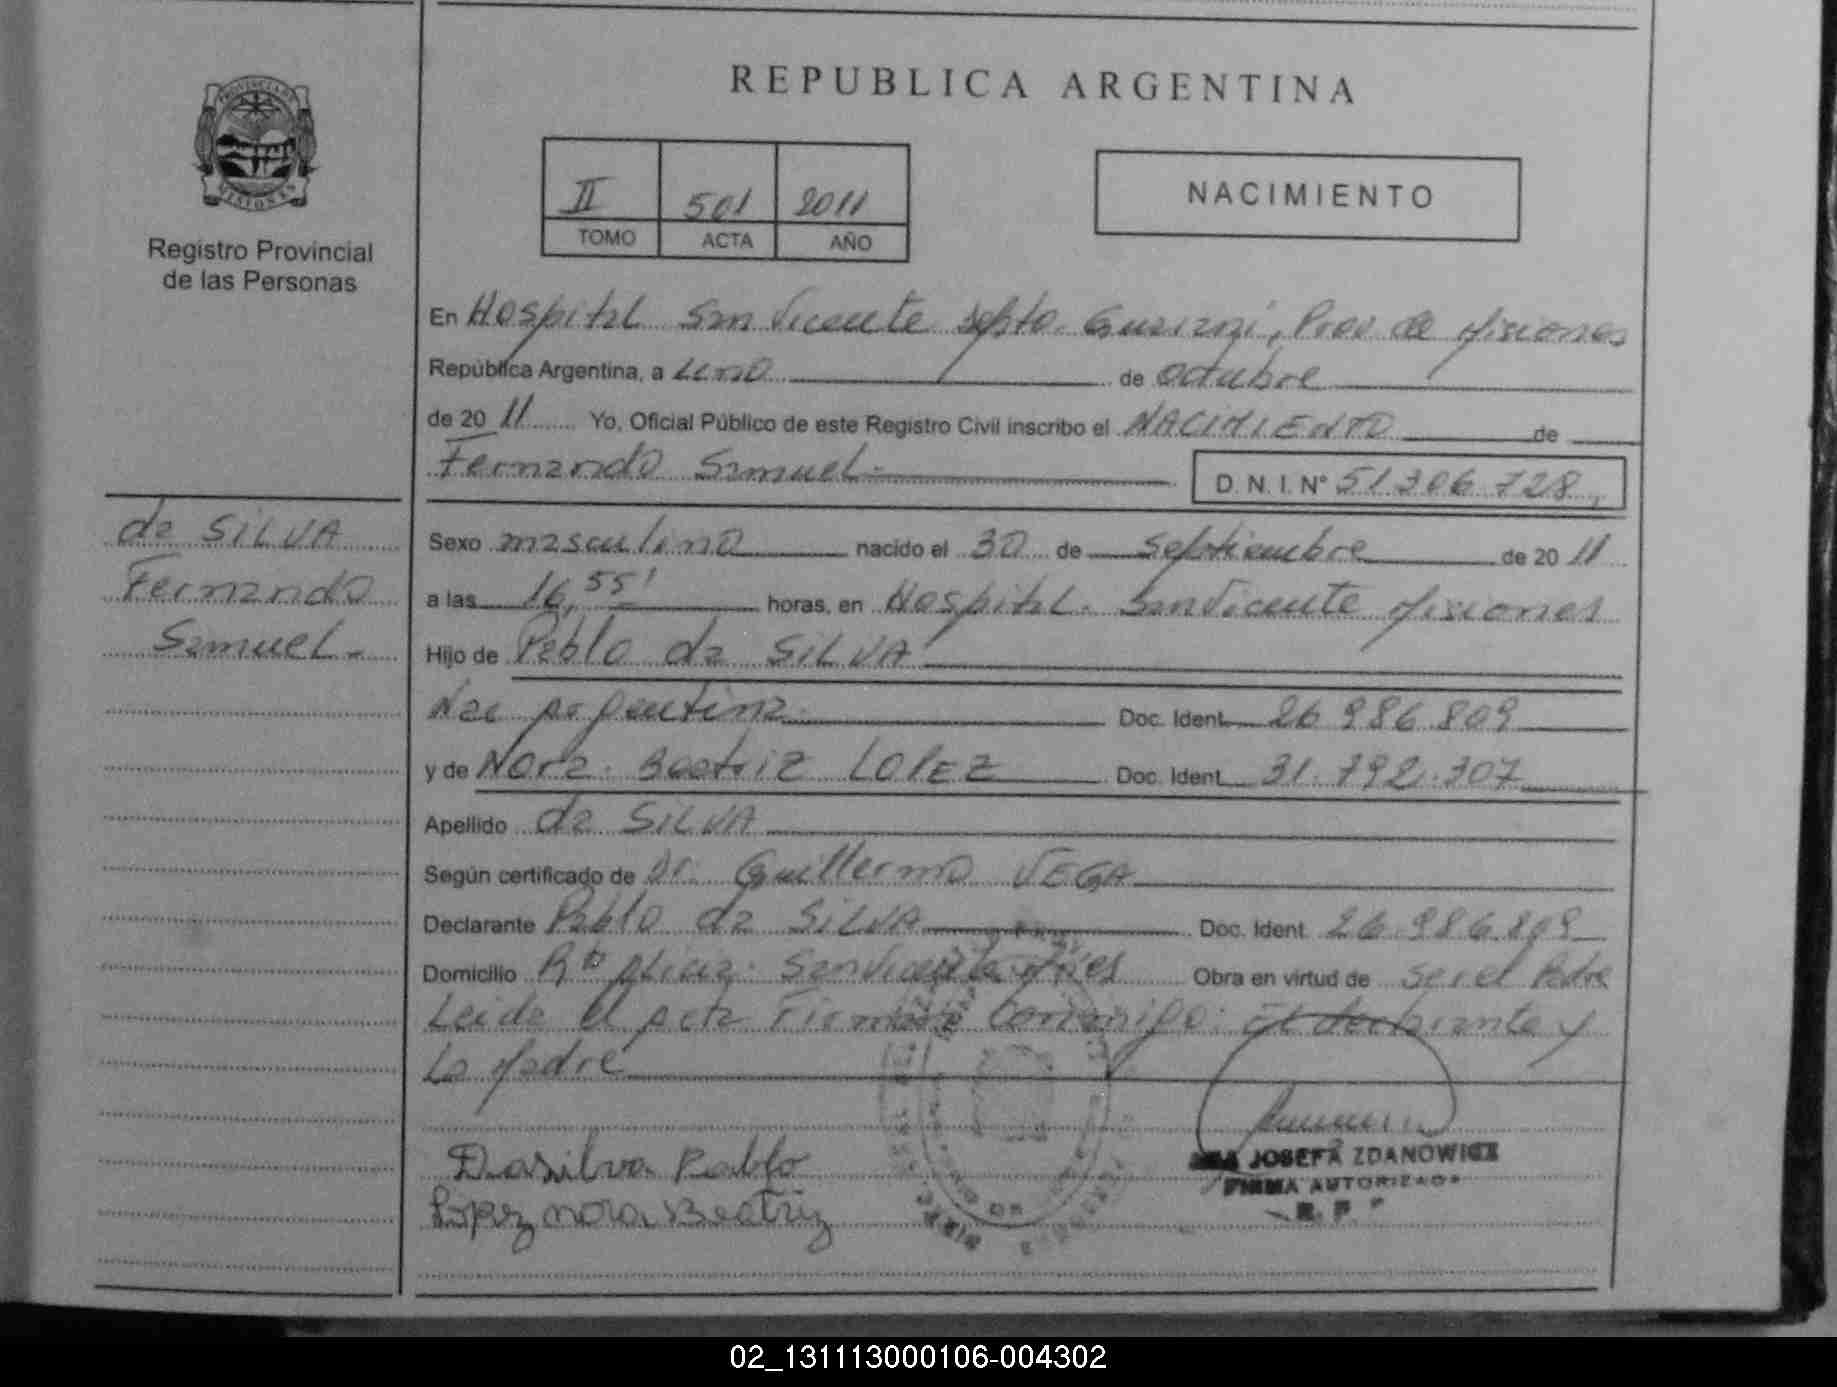 REPUBLICA ARGENTINA
PROVINCIA DE
MISIONES
Registro Provincial
de las Personas
II 501 2011
TOMO ACTA AÑO
NACIMIENTO
En Hospital San Vicente Dpto. Guaraní, Prov de Misiones
República Argentina, a uno de octubre
de 20 11 Yo, Oficial Público de este Registro Civil inscribo el NACIMIENTO de
Fernando Samuel.- D. N. I. N° 51 306 728,
da SILVA
Fernando
Samuel.-
Sexo masculino nacido el 30 de septiembre de 20 11
a las 16,55' horas, en Hospital. San Vicente Misiones
Hijo de Pablo da SILVA
Nac argentina. Doc. Ident. 26 986 809
y de Nora. Beatriz LOPEZ Doc. Ident. 31.792.307
Apellido da SILVA
Según certificado de Dr. Guillermo VEGA
Declarante Pablo da SILVA Doc. Ident. 26 986 809
Domicilio San Vicente Obra en virtud de ser el Padre
Leida el acta Firman Conmigo. El declarante y
La Madre
Dasilva Pablo
Lopez nora Beatriz
JOSEFA ZDANOWICZ
FIRMA AUTORIZADA
R. P.
02_131113000106-004302